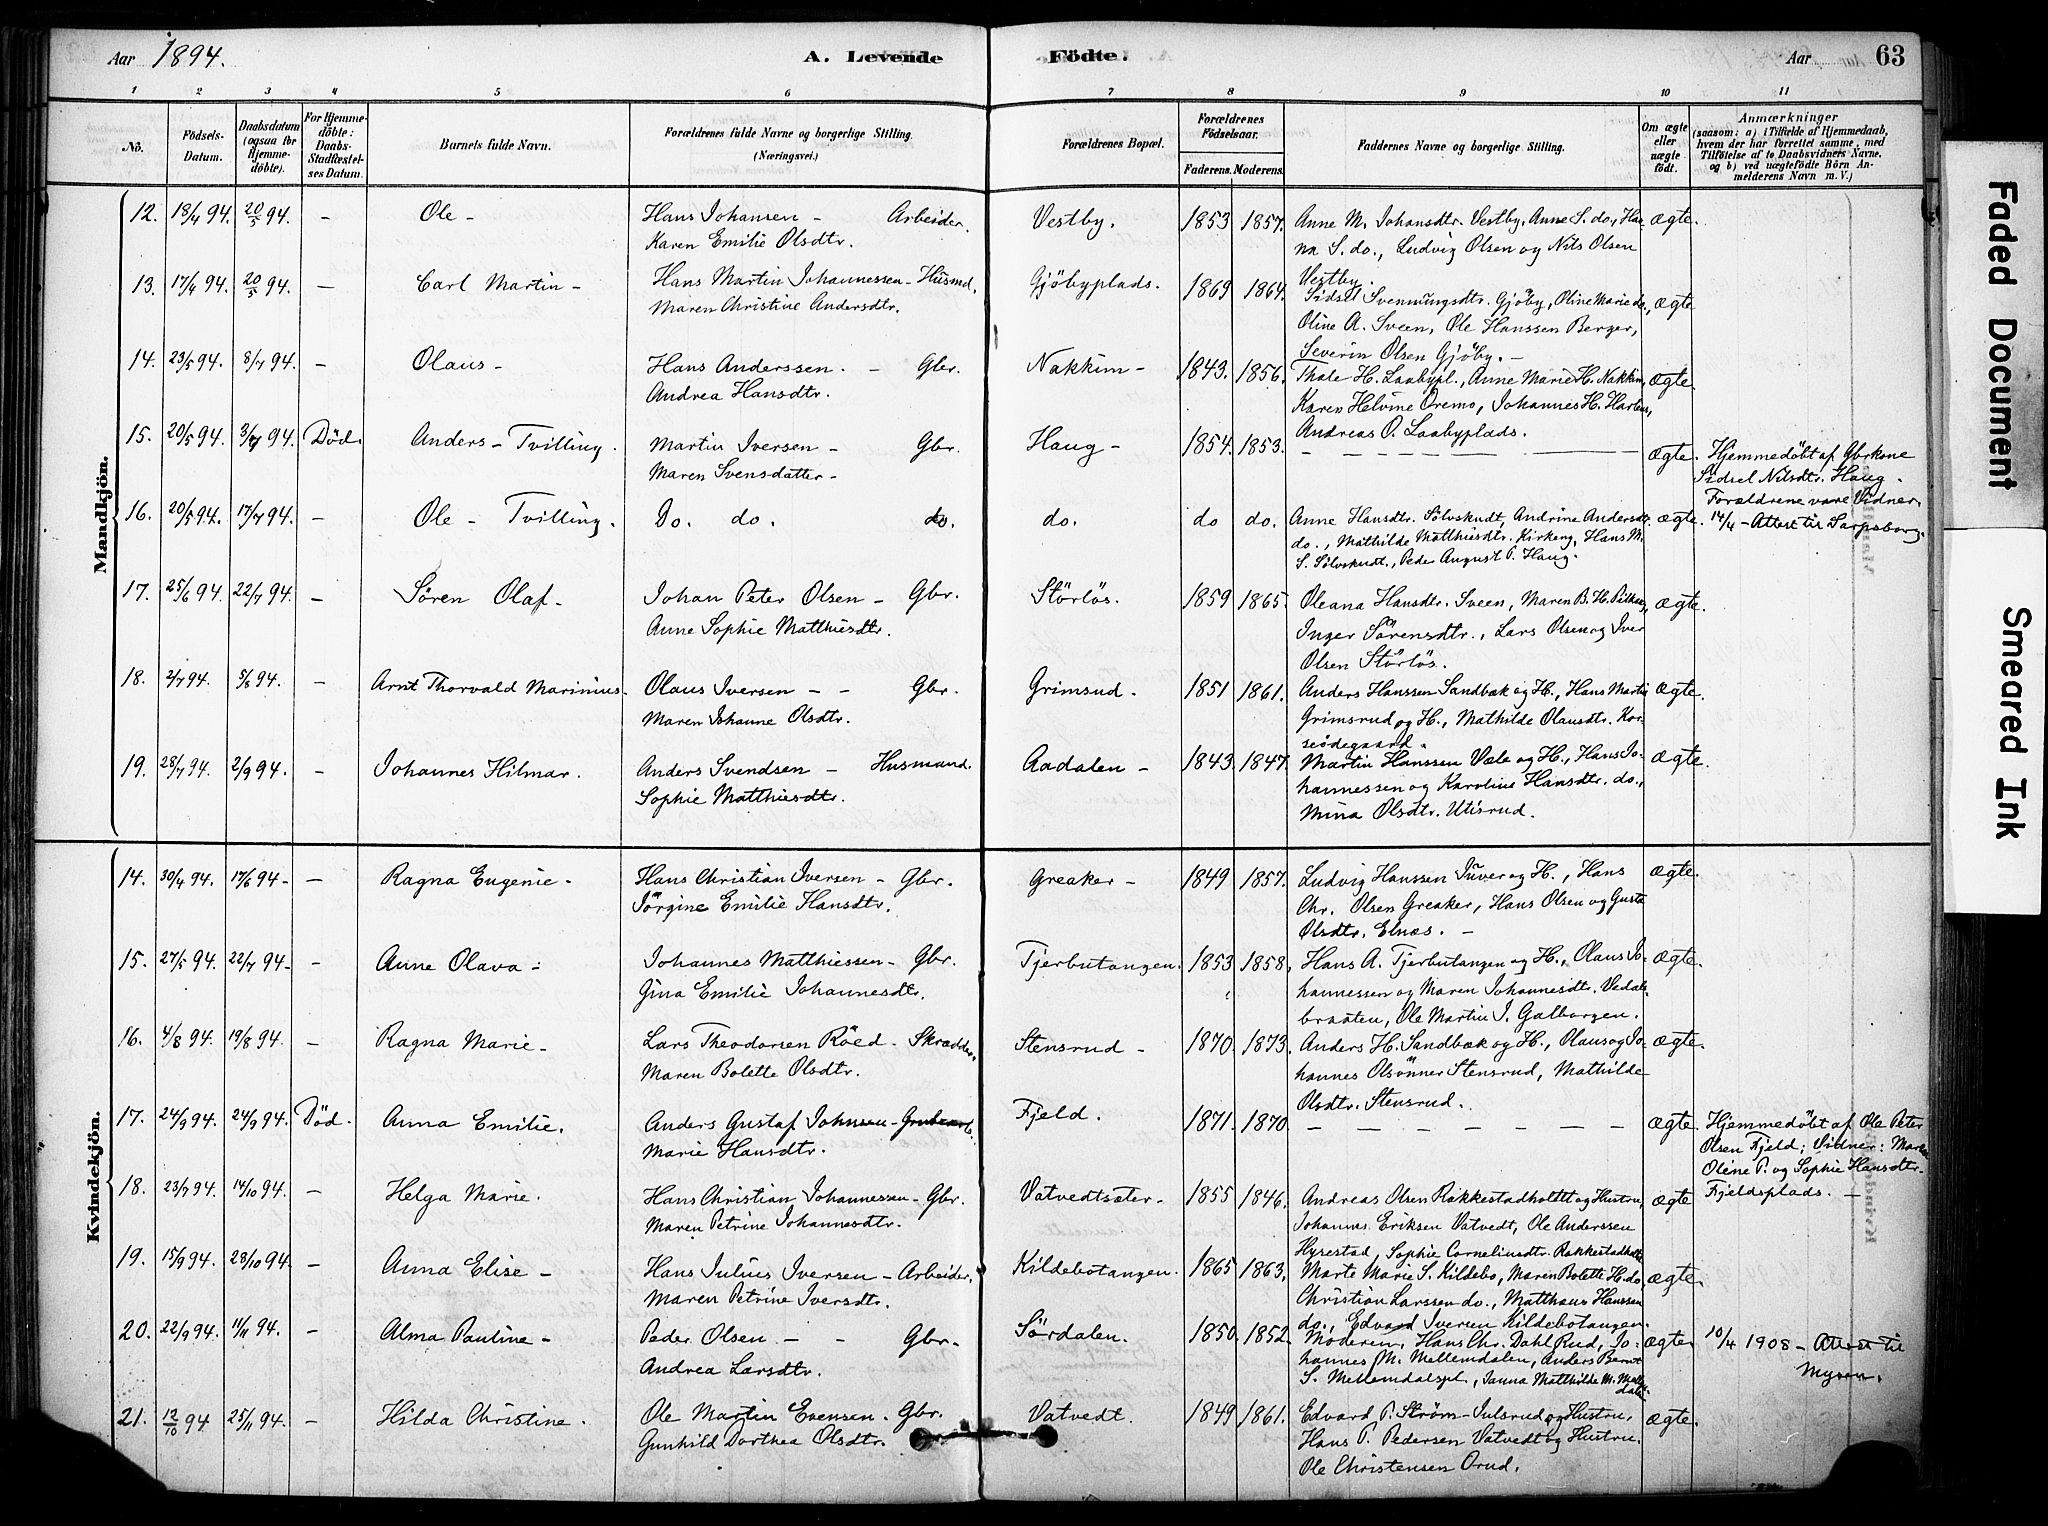 Aar 1894.
A. Levende
Födte.
Aar
63
1
2
3
4
5
6
7
8
9
10
11
No.
Födsels-Datum.
Daabsdatum (ogsaa for Hjemme-döbte).
For Hjemme-döbte: Daabs-Stadfæstel-ses Datum.
Barnets fulde Navn.
Forældrenes fulde Navne og borgerlige Stilling. (Næringsvei.)
Forældrenes Bopæl.
Forældrenes Födselsaar.
Faderens. Moderens.
Faddernes Navne og borgerlige Stilling.
Om ægte eller uægte födt.
Anmærkninger
(saasom: a) i Tilfælde af Hjemmedaab, hvem der har forrettet samme, med Tilföielse af to Daabsvidners Navne, og b) ved uægtefödte Börn Anmelderens Navn m. V.)
Mandkjön.
12. 18/4 94. 20/5 94. – Ole – Hans Johansen – Arbeider. Vestby. 1853 1857. Anne M. Johansdtr. Vestby, Anne S. do., Han- ægte.
Karen Emilie Olsdtr. na S. do., Ludvig Olsen og Nils Olsen
Vestby.
13. 17/4 94. 20/5 94. – Carl Martin – Hans Martin Johannessen – Husmd. Gjöbyplads. 1869 1864. Sidsel Svenningsdtr. Gjöby, Oline Marie do., ægte
Maren Christine Andersdtr. Oline A. Sveen, Ole Hanssen Berger,
Severin Olsen Gjöby. –
14. 23/5 94. 8/7 94. – Olaus – Hans Anderssen. – Gbr. Nakkim – 1843. 1856. Thale H. Laabypl., Anne Marie H. Nakkim, ægte.
Andrea Hansdtr. Karen Helvine Oremo, Johannes H.
Andreas O. Laabyplads.
15. 20/5 94. 3/7 94. Död. Anders – Tvilling. Martin Iversen – Gbr. Haug – 1854. 1853. – – – – ægte. Hjemmedöbt af Gbrkone
Maren Svensdatter – Sidsel Nilsdtr. Haug.
Forældrene vare Vidner.
16. 20/5 94. 17/7 94. – Ole – Tvilling. Do. do. do. do. do do. Anne Hansdtr. Sölvskudt, Andrine Andersdtr. ægte. 14/4 – Attest til Sarpsborg.
do., Mathilde Matthisdtr. Kirkeng, Hans M.
S. Sölvskudt, Peder August P. Haug.
17. 25/6 94. 22/7 94. – Sören Olaf – Johan Peter Olsen – Gbr. Störlös. 1859 1865. Oleana Hansdtr. Sveen, Maren B. H. ægte.
Anne Sophie Matthisdtr. Inger Sörensdtr., Lars Olsen og Iver
Olsen Störlös.
18. 2/7 94. 5/8 94. – Arnt Thorvald Marinius. Olaus Iversen – – Gbr. Grimsrud. 1851 1861. Anders Hanssen Sandbæk og H., Hans Martin ægte.
Maren Johanne Olsdtr. Grimsrud og H., Mathilde Olausdtr. Kor-
seödegaard.
19. 28/7 94. 2/9 94. – Johannes Hilmar. Anders Svendsen – Husmand. Aadalen – 1843. 1847. Martin Hanssen Væle og H., Hans Jo- ægte.
Sophie Matthisdtr. hannessen og Karoline Hansdtr. do.,
Mina Olsdtr. Utisrud.
Kvindekjön.
14. 30/4 94. 17/6 94 – – Ragna Eugenie – Hans Christian Iversen – Gbr. Greaker – 1849 1857. Ludvig Hanssen Tuver og H., Hans ægte.
Jörgine Emilie Hansdtr. Chr. Olsen Greaker, Hans Olsen og Gusta
Olsdtr. Elnæs. –
15. 27/5 94. 22/7 94 – – Anne Olava – Johannes Matthiessen – Gbr. Tjerbutangen. 1853 1858. Hans A. Tjerbutangen og H., Olaus Jo- ægte.
Gina Emilie Johannesdtr. hannessen og Maren Johannesdtr. Vedals-
braaten, Ole Martin J. Galborgen.
16. 4/8 94. 19/8 94. – Ragna Marie – Lars Theodorsen Röed – Skrædder, Stensrud – 1870. 1873. Anders H. Sandbæk og H., Olaus og Jo- ægte.
Maren Bolette Olsdtr. hannes Olsönner Stensrud, Mathilde
Olsdtr. Stensrud.
17. 24/9 94. 24/9 94. Död. Anna Emilie. Anders Gustaf Johnsen – Grubearb. Fjeld. 1871. 1870. – – – – – ægte. Hjemmedöbt af Ole Peter
Marie Hansdtr. Olsen Fjeld; Vidner: Maren
Oline P. og Sophie Hansdtr.
Fjeldsplads. –
18. 23/7 94. 14/10 94. – Helga Marie. Hans Christian Johannessen – Gbr. Vatvedtsæter – 1855 1846. Andreas Olsen Rakkestadholtet og Hustru, ægte
Maren Petrine Johannesdtr. Johannes Eriksen Vatvedt, Ole Anderssen
Hyrestad, Sophie Corneliusdtr. Rakkestadholtet
19. 15/9 94. 28/10 94. – Anna Elise – Hans Julius Iversen – Arbeider, Kildebotangen. 1865 1863, Marte Marie S. Kildebo, Maren Bolette H. do., ægte.
Maren Petrine Iversdtr. Christian Larssen do., Matthæus Hanssen
do., Edvard Iversen Kildebotangen.
20. 22/9 94. 11/11 94. – Alma Pauline – Peder Olsen – – Gbr. Sördalen. 1850. 1852. Moderen, Hans Chr. Dahl Rud, Jo- ægte 10/4 1908 – Attest til
Andrea Larsdtr. hannes M. Mellemdalen, Anders Bernt Mysen.
S. Mellemdalspl., Janna Matthilde M. Mellem-
dalen
21. 12/10 94 25/11 94. – Hilda Christine. Ole Martin Evensen. Gbr. Vatvedt. 1849 1861. Edvard P. Ström – Julsrud og Hustru, ægte.
Gunhild Dorthea Olsdtr. Hans P. Pedersen Vatvedt og Hustru.
Ole Christensen Orud.
Faded Document
Smeared Ink